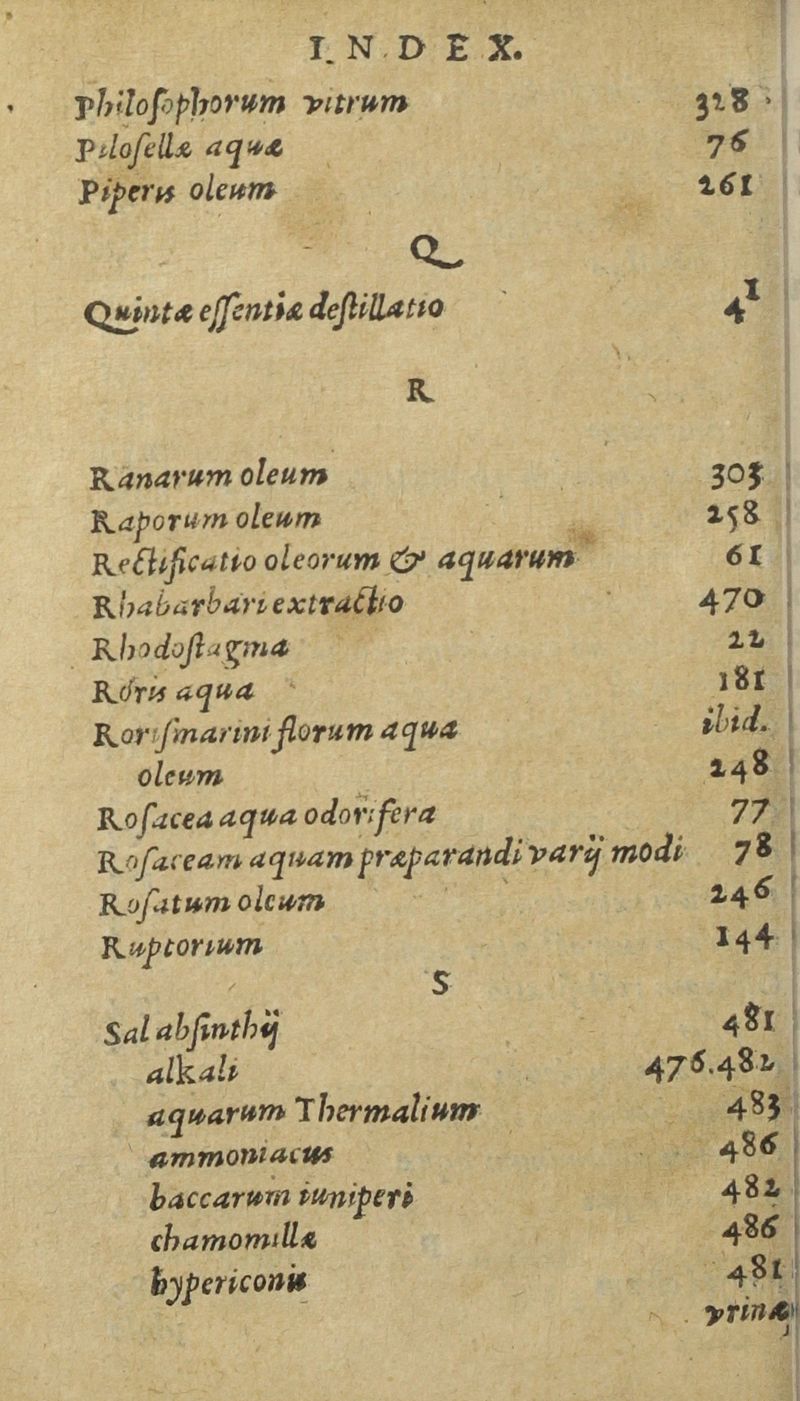 INDEX.
Philosophorum vitrum 328
Pilosellæ aquæ 76
Piperis oleum 261
Q
Quintæ essentiæ destillatio 41
R
Ranarum oleum 305
Raporum oleum 258
Rectificatio oleorum & aquarum 61
Rhabarbari extractio 470
Rhodostagma 22
Roris aqua 181
Rorismarini florum aqua ibid.
oleum 248
Rosacea aqua odorifera 77
Rosaceam aquam præparandi varij modi 78
Rosatum oleum 246
Ruptorium 144
S
Sal absinthij 481
alkali 476.482
aquarum Thermalium 483
ammoniacus 486
baccarum iuniperi 482
chamomillæ 486
hypericonis 481
vrinæ